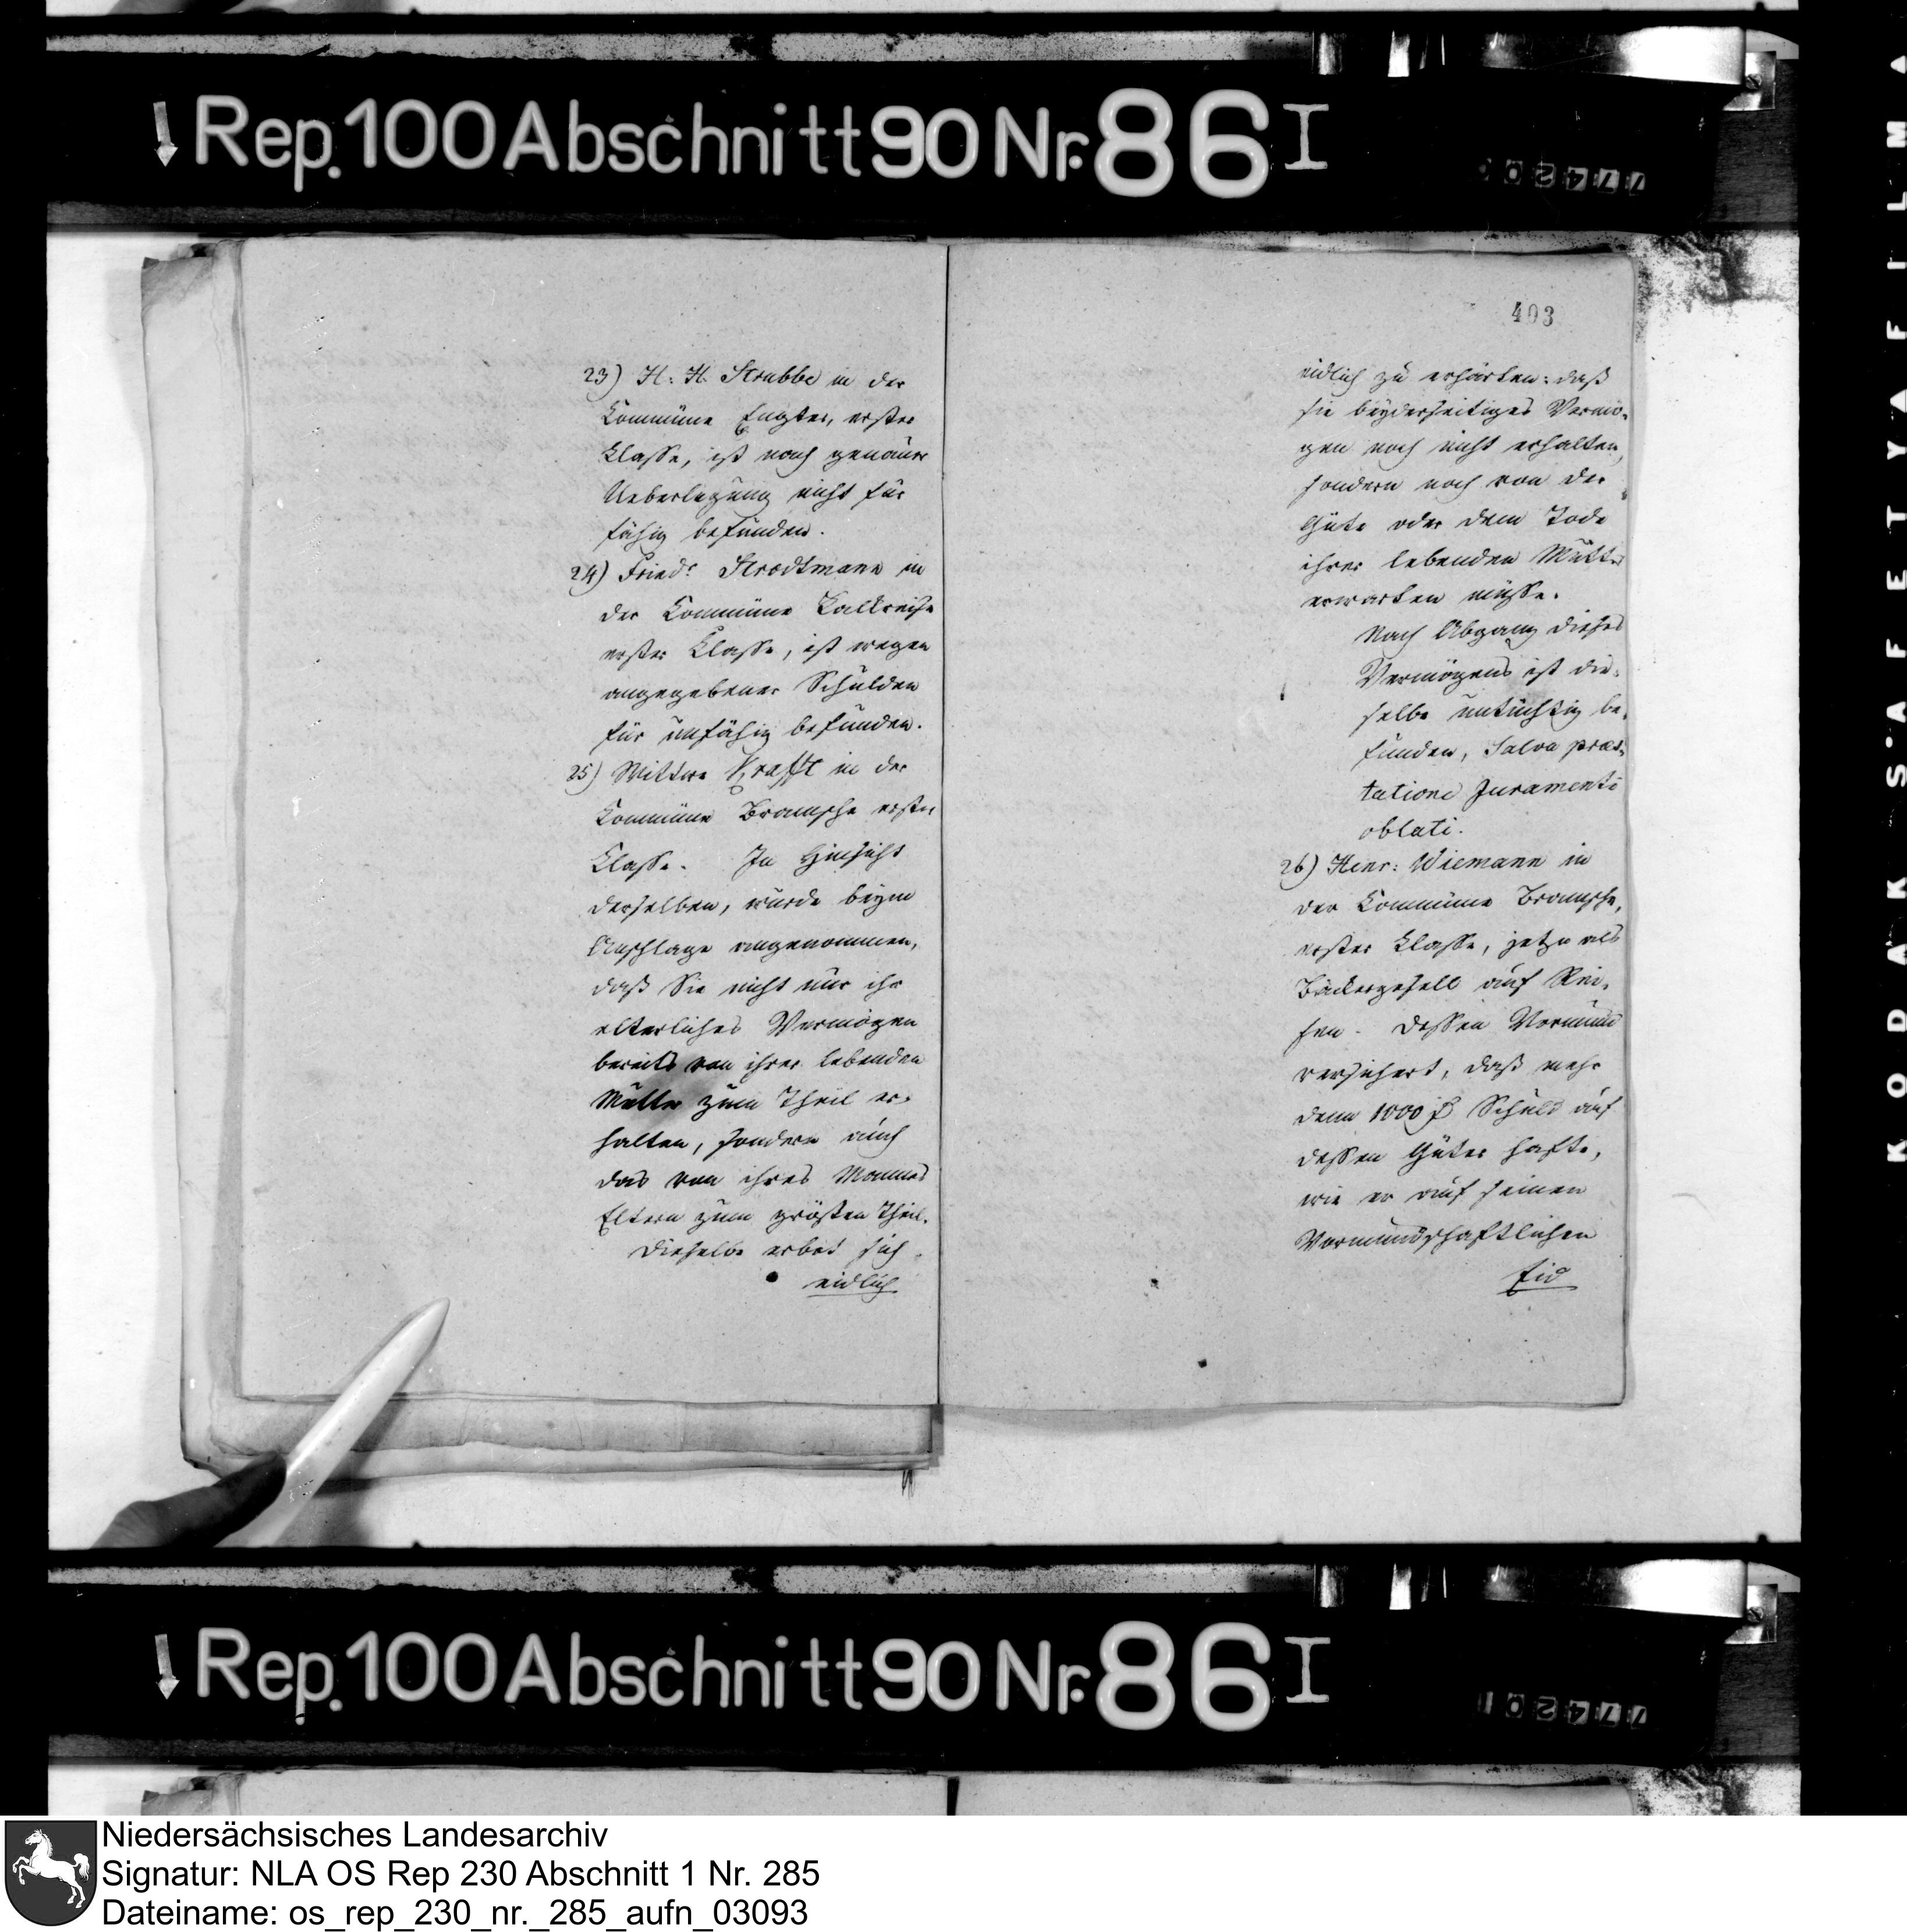 Rep. 100 Abschnitt 90 Nr. 86 I
77420
23) H. H. Strubbe in der
Commüne Engter, erster
Classe, ist nach genauer
Ueberlegung nicht für
fähig befunden.
24) Friedr. Strodtmann in
der Commüne Kalkreise
erster Classe, ist wegen
angegebener Schulden
für unfähig befunden.
25) Wittwe Krafft in der
Commüne Bramsche erster
Classe. In Hinsicht
derselben, wurde beym
Anschlage angenommen,
daß Sie nicht nur ihr
elterliches Vermögen
bereits von ihrer lebenden
Mutter zum Theil er-
halten, sondern auch
das von ihres Mannes
Eltern zum größten Theil.
Dieselbe erbot sich
eidlich
403
eidlich zu erhärten: daß
sie beyderseitiges Vermö-
gen noch nicht erhalten,
sondern noch von der
Güte oder dem Tode
ihrer lebenden Mutter
erwarten müsse.
Nach Abgang dieses
Vermögens ist die-
selbe untüchtig be-
funden, Salva præs-
tatione Juramenti
oblati.
26) Henr: Wiemann in
der Commüne Bramsche,
erster Classe, jetzo als
Bäckergesell auf Rei-
sen. Dessen Vormund
versichert, daß mehr
denn 1000 Schuld auf
dessen Güter hafte,
wie er auf seinen
Vormundschaftlichen
Eid
Rep. 100 Abschnitt 90 Nr. 86 I
77420
KODAK S·AFETY A FILM A
Niedersächsisches Landesarchiv
Signatur: NLA OS Rep 230 Abschnitt 1 Nr. 285
Dateiname: os_rep_230_nr._285_aufn_03093